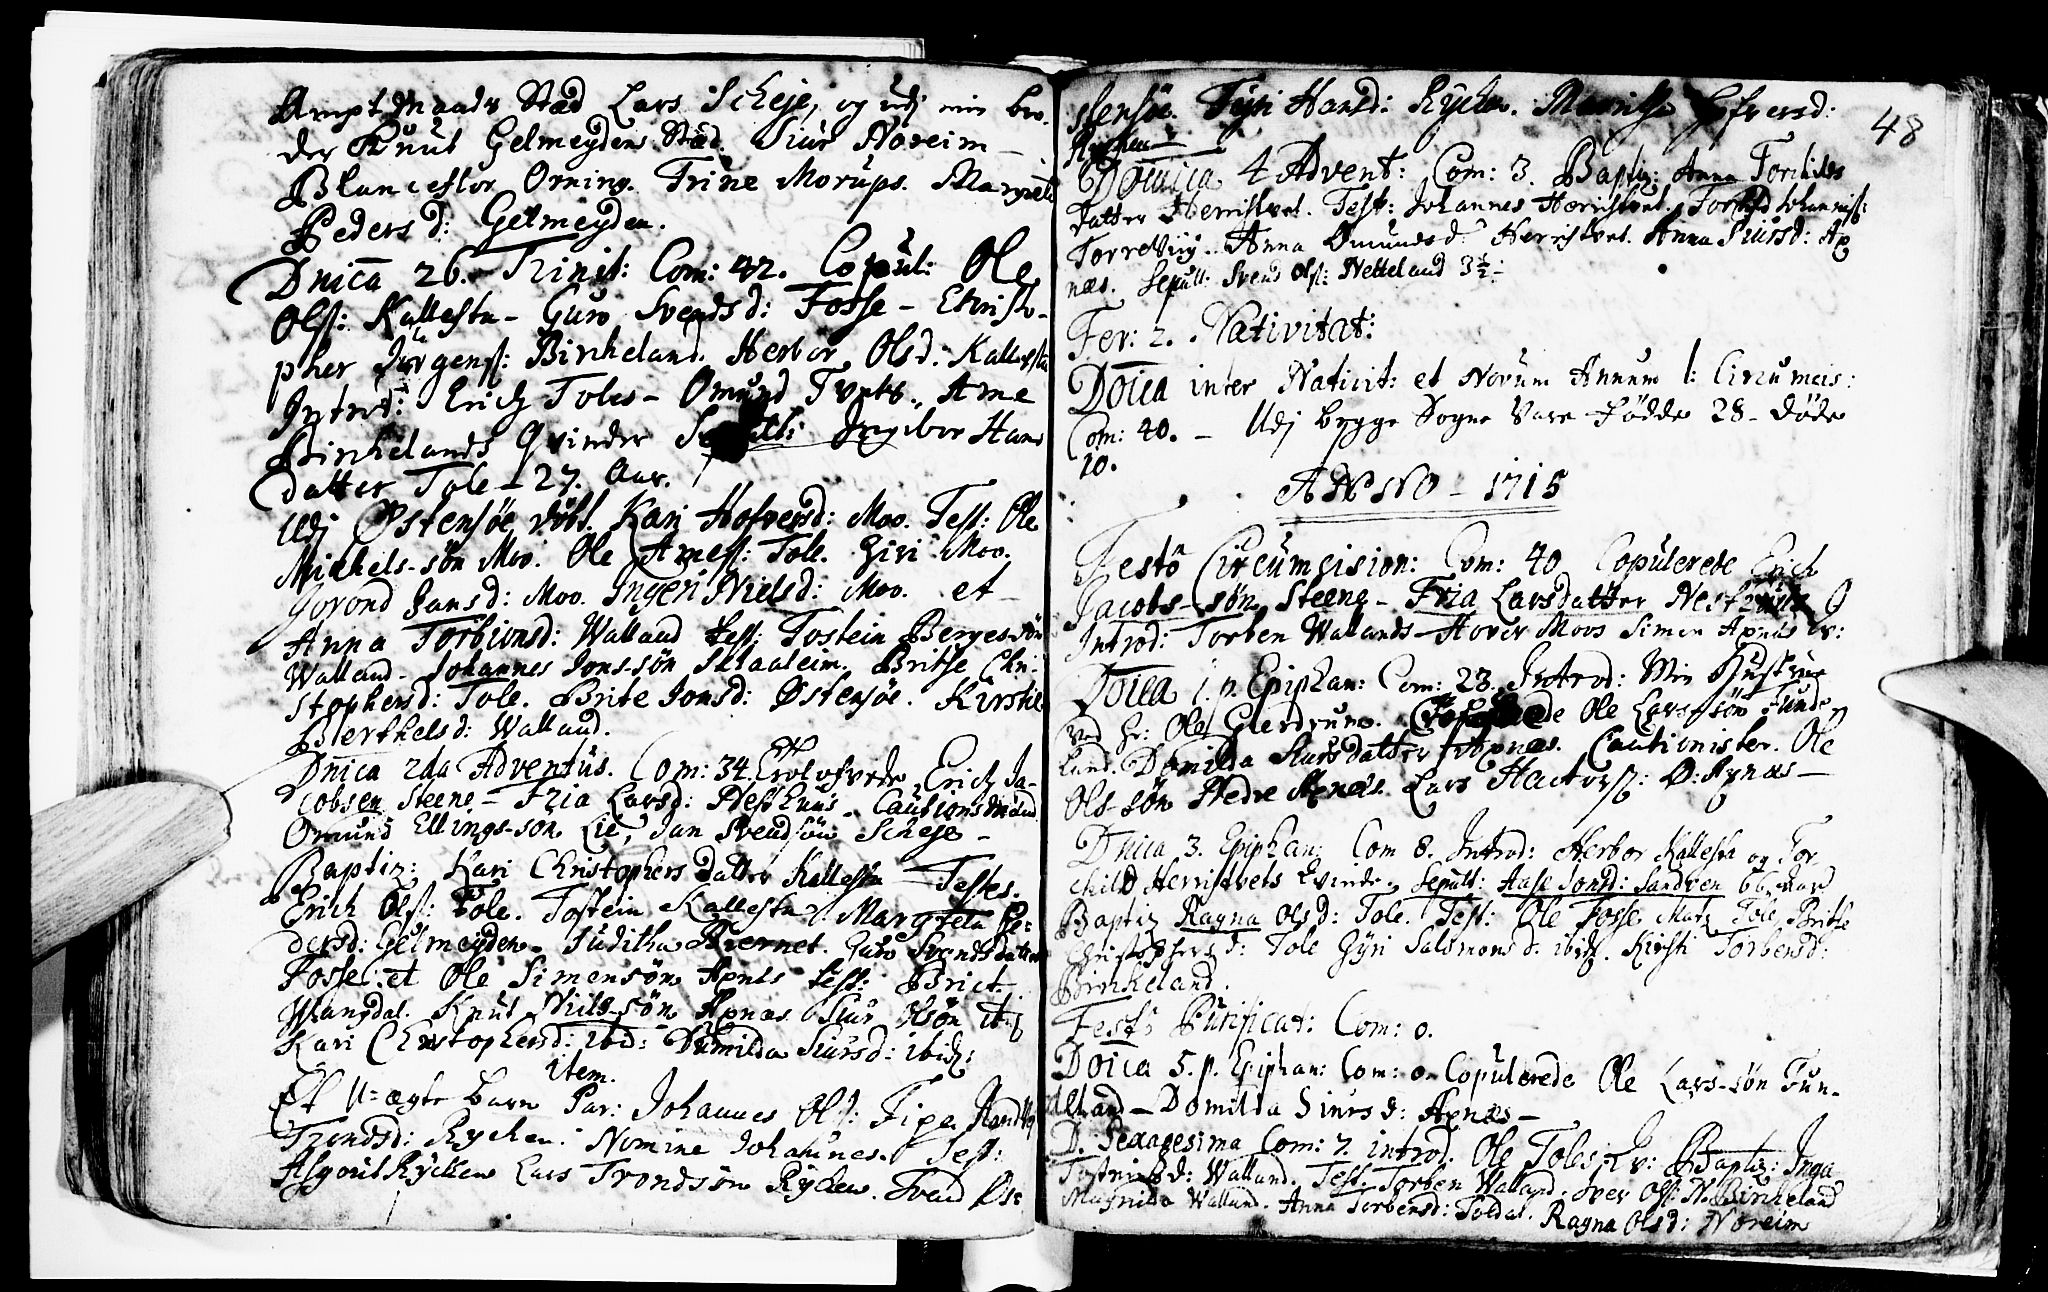 Ampt Mands Stæd Lars Scheje, og udj min bro-
der Knut Gelmeyden Stæd. Siur Noreim
Blancestor Orning. Trine Morups. Margrete
Pedersd: Gelmeyden.
Dnica 26. Trinit: Com: 42. Copul: Ole
Ols: Kallestu – Guro Svendsd: Fosse – Christo-
pher Jørgens: Birkeland. Herbor Olsd. Kallestu
Introd: Erich Toles – Omund Tvets, Arne
Birkelands Qvinder Ingebor Hans
datter Tole – 27. Aar.
Udj Østensøe døbt Kari Hofversd: Moo. Test: Ole
Michels-søn Moo. Ole Arness: Tole. Giri Moo.
Gorond Hansd: Moo. Ingeri Nielsd: Moo. et
Anna Torbionsd: Walland test: Tostein Bergessøn
Walland. Johannes Jons-søn Sklaaleim. Britse Chri-
stophersd: Tole. Brite Jonsd: Østensøe. Kirstie
Berthelsd: Walland.
Dnica 2da Adventus. Com: 34. Trolofvede Erich Ja-
cobsen Steene – Fria Larsd: Nesthuus – Cautionsmænd
Omund Ellings-søn Lie, Jan Svendsøn Scheje –
Baptiz: Kari Christophers datter Kallestu – Testes.
Erich Ols: Tole. Tostein Kallestu. Margreta Pe-
dersd: Gelmeyden. Juditha Bernet. Guro Svendsdatter
Fosse. et Ole Simensøn Apnes test: Brict
Wangdal. Knut Nils-søn Apnæs Siur Olsøn ibid
Kari Christophersd: ibid: Domilda Siursd: ibid:
item.
Et U-ægte barn Par: Johannes Ols: Fiye
Trondsd: Rychen. Nomine Johannes. Test:
Asgout Rycken Lars Trondsøn Rycken. Øs-
stensøe. Hansd: Rycken. Hofversd: 48
Rycken
Doica 4 Advent: Com: 3. Baptiz: Anna Torkilds
datter Herristvet. Test: Johannes Herristvet. Johannis:
Torreviig. Anna Omundsd: Herristvet. Anna Siursd: Ap
næs. Sepult: Svend Ols: Netteland 3½
Fer: 2. Nativitat:
Doica inter Nativit: et Novum Annum l: Circumcis:
Com: 40. – Udj begge Sogne Vare fødde 28 – døde
10.
ANNO – 1715
Festo Circumcision: Com: 40 Copulerede Erich
Jacobs-søn Steene – Fria Larsdatter
Introd: Torben Wallands – Hover Moos Simen Apnes qv:
Doica 1. p. Epiphan: Com: 23. Introd: Min Hustrue
ved Hr: Ole Gierdrum. Ole Lars-søn Funde-
land. Domilda Siursdatter Apnæs. Cautionister. Ole
Ols-søn Nedre Apnæs. Lars Hactors: Ø: Apnæs –
Dnica 3. Epiphan: Com 8. Introd: Herbor Kallestu og Tor
child Herristvets Qvinde. Sepult: Aase Jonsd: Sandven 66 Aar
Baptiz Ragna Olsd: Tole. Test: Ole Fosse. Matz Tole, Britte
Christophersd: Tole Gyri Salomonsd: ibid. Kirsti Torbensd:
Birkeland.
Festo Purificat: Com: 0.
Doica 5. p. Epiphan: Com: 0. Copulerede Ole Lars-søn Fun-
deland – Domilda Siursd: Apnæs –
D. Sexagesima Com: 7. introd. Ole Toles qv: Baptiz: Inga
Walland. Test: Torben Walland. Ols: N. Birkeland
Magnilda Walland. Anna Torbensd: Toldal. Ragna Olsd: Noreim